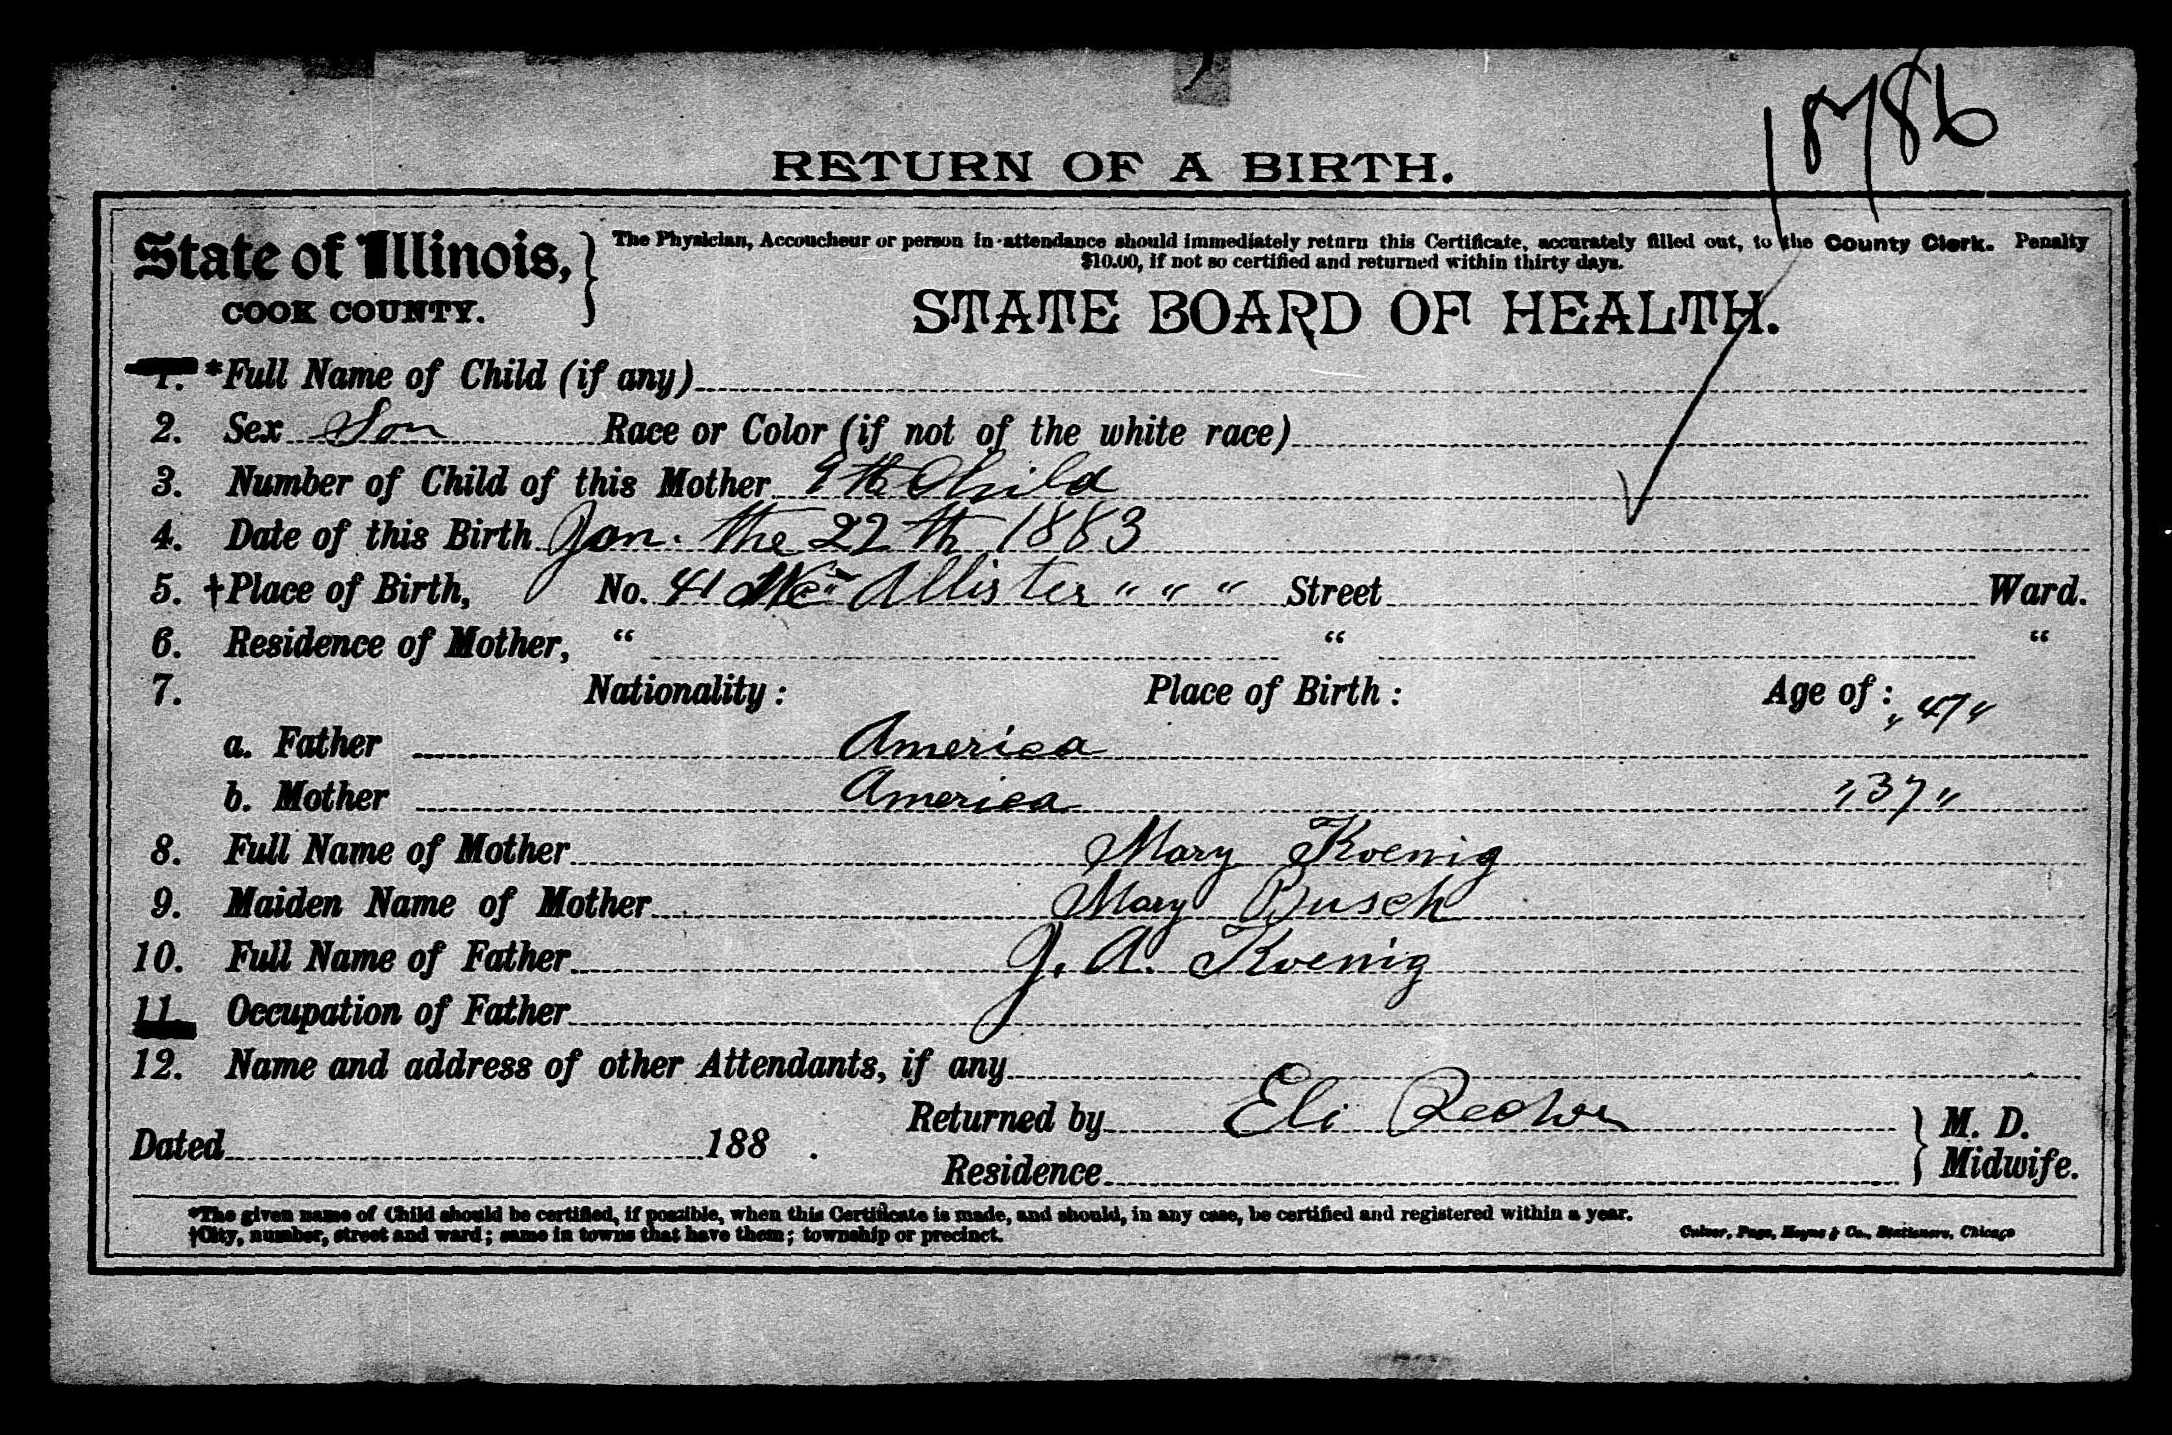 18786
RETURN OF A BIRTH.
State of Illinois,
COOK COUNTY.
The Physician, Accoucheur or person in attendance should immediately return this Certificate, accurately filled out, to the County Clerk. Penalty
$10.00, if not so certified and returned within thirty days.
STATE BOARD OF HEALTH.
1. *Full Name of Child (if any)
2. Sex Son Race or Color (if not of the white race)
3. Number of Child of this Mother 9th Child
4. Date of this Birth Jan. the 22 th 1883
5. †Place of Birth, No. 41 Mc Allister " " " Street Ward.
6. Residence of Mother, " " "
7. Nationality: Place of Birth: Age of:
a. Father America "47"
b. Mother America "37"
8. Full Name of Mother Mary Koenig
9. Maiden Name of Mother Mary Busch
10. Full Name of Father J. A. Koenig
11. Occupation of Father
12. Name and address of other Attendants, if any
Returned by Eli M. D.
Dated 188 .
Residence Midwife.
*The given name of Child should be certified, if possible, when this Certificate is made, and should, in any case, be certified and registered within a year.
†City, number, street and ward; same in towns that have them; township or precinct.
Culver, Page, Hoyne & Co., Stationers, Chicago